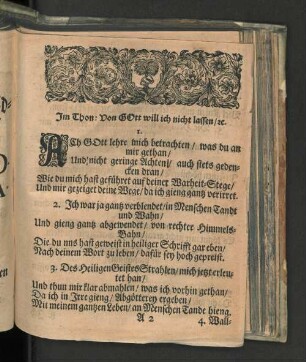 Im Thon: Von GOtt will ich nicht lassen/ ꝛc.
1.
ACh GOtt lehre mich betrachten/ was du an
mir gethan/
Und nicht geringe Achten/ auch stets geden-
cken dran/
Wie du mich hast geführet auf deiner Warheit-Stege/
Und mir gezeiget deine Wege/ da ich gieng gantz verirret.
2. Ich war ja gantz verblendet/ in Menschen Tandt
und Wahn/
Und gieng gantz abgewendet/ von rechter Himmels-
Bahn/
Die du uns hast geweist in heiliger Schrifft gar eben/
Nach deinem Wort zu leben/ dafür sey hoch gepreist.
3. Des Heiligen Geistes Strahlen/ mich jetzt erleuch-
tet han/
Und thun mir klar abmahlen/ was ich vorhin gethan/
Da ich in Irre gieng/ Abgötterey ergeben/
Mit meinem gantzen Leben/ an Menschen Tande hieng.
A 2 4. Wall-